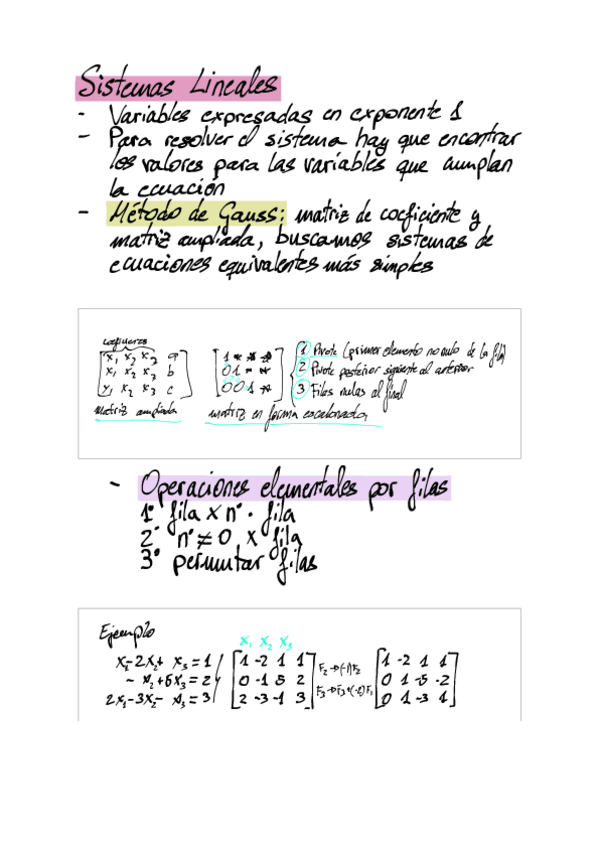 Sistemas Lineales
- Variables expresadas en exponente 1
- Para resolver el sistema hay que encontrar
los valores para las variables que cumplan
la ecuación
- Método de Gauss: matriz de coeficiente y
matriz ampliada, buscamos sistemas de
ecuaciones equivalentes más simples
coeficientes
x₁ x₂ x₃ a
x₁ x₂ x₃ b
x₁ x₂ x₃ c
Matriz ampliada
1 * * *
0 1 * *
0 0 1 *
matriz en forma escalonada
1 Pivote (primer elemento no nulo de la fila)
2 Pivote posterior siguiente al anterior
3 Filas nulas al final
- Operaciones elementales por filas
1º fila x nº · fila
2º nº ≠ 0 x fila
3º permutar filas
Ejemplo
x₁-2x₂+ x₃ = 1
- x₂+5x₃ = 2
2x₁-3x₂- x₃ = 3
x₁ x₂ x₃
1 -2 1 1
0 -1 5 2
2 -3 -1 3
F₂→(-1)F₂
F₃→F₃+(-2)F₁
1 -2 1 1
0 1 -5 -2
0 1 -3 1